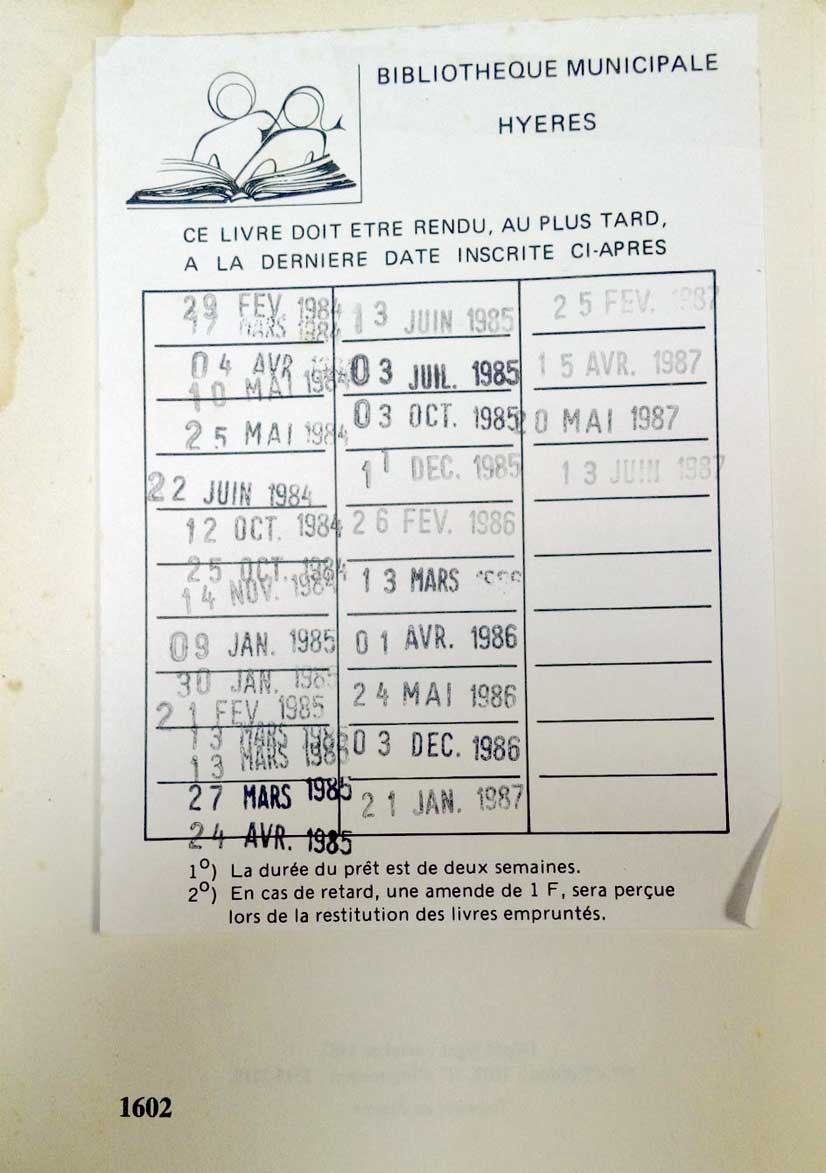 BIBLIOTHEQUE MUNICIPALE
HYERES
CE LIVRE DOIT ETRE RENDU, AU PLUS TARD,
A LA DERNIERE DATE INSCRITE CI-APRES
29 FEV 1984
17 MARS 1984
04 AVR
10 MAI 1984
25 MAI 1984
22 JUIN 1984
12 OCT. 1984
25 OCT. 1984
14 NOV. 1984
09 JAN. 1985
30 JAN. 1985
21 FEV 1985
13 MARS 1985
13 MARS 1985
27 MARS 1985
24 AVR. 1985
13 JUIN 1985
03 JUIL. 1985
03 OCT. 1985
11 DEC. 1985
26 FEV. 1986
13 MARS
01 AVR. 1986
24 MAI 1986
03 DEC. 1986
21 JAN. 1987
25 FEV. 1987
15 AVR. 1987
20 MAI 1987
13 JUIN 1987
1º) La durée du prêt est de deux semaines.
2º) En cas de retard, une amende de 1 F, sera perçue
lors de la restitution des livres empruntés.
1602